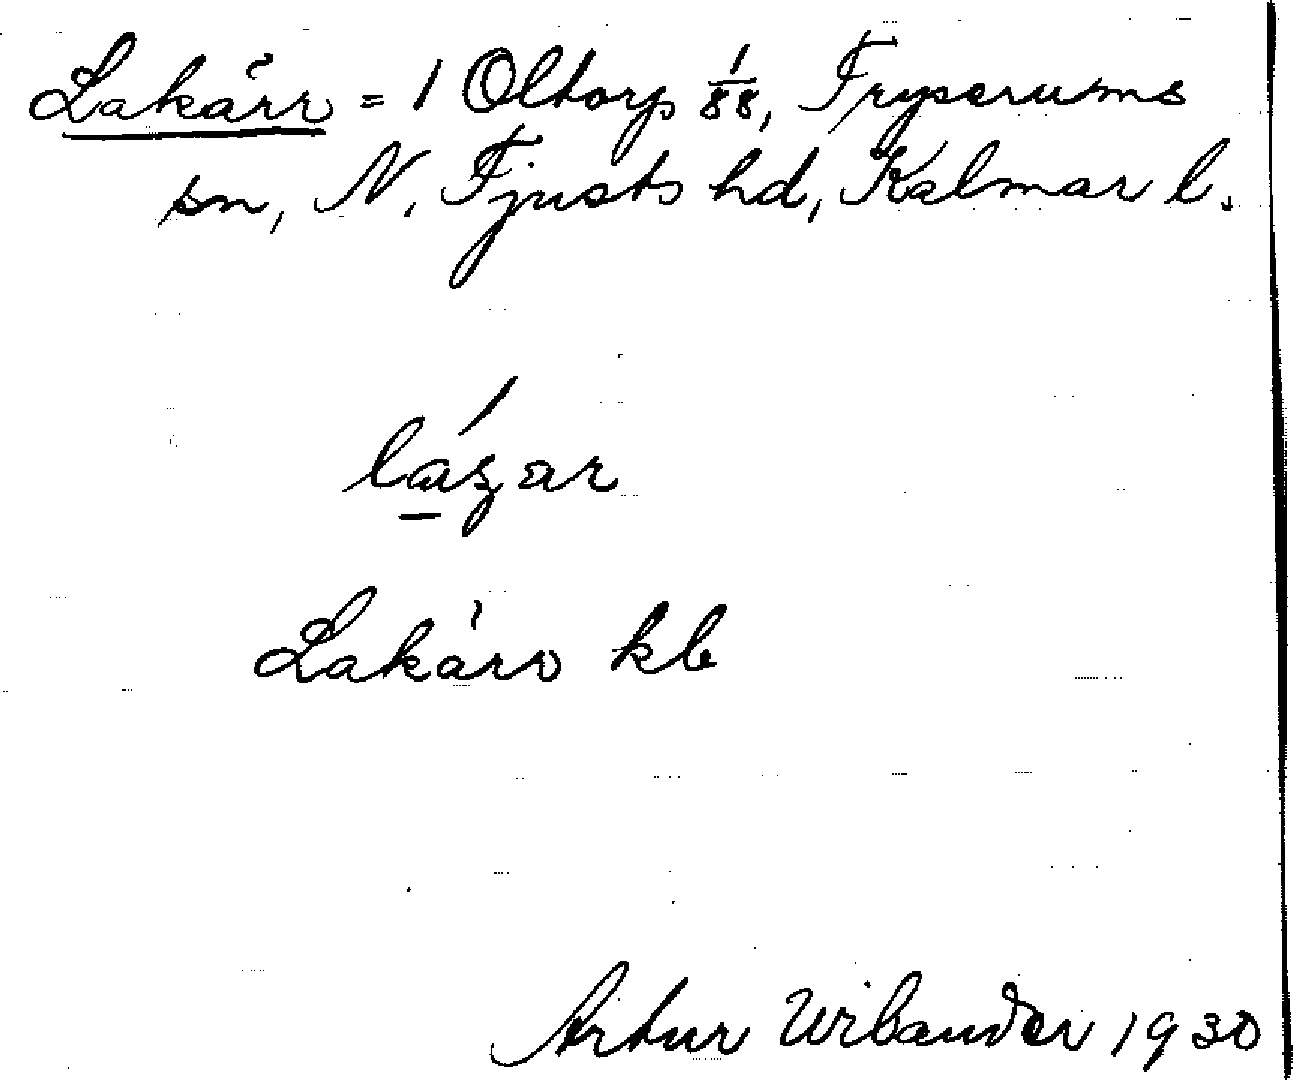 Lakärr = 1 Oltorp 1/88, Tryserums
sn, N. Tjusts hd, Kalmar l.
lázar
Lakärr kb
Artur Wilander 1930